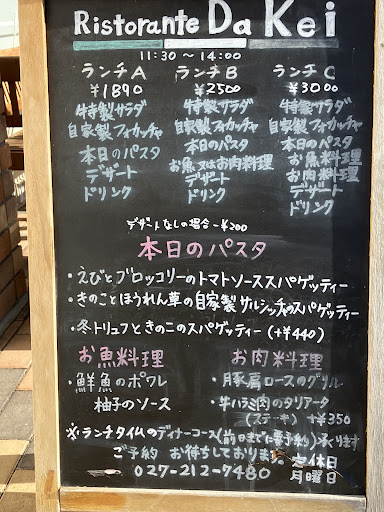 Ristorante Da Kei
11:30～14:00
ランチA ランチB ランチC
¥1890 ¥2500 ¥3000
特製サラダ 特製サラダ 特製サラダ
自家製フォカッチャ 自家製フォカッチャ 自家製フォカッチャ
本日のパスタ お魚又はお肉料理 本日のパスタ
デザート デザート お魚料理
ドリンク ドリンク お肉料理
デザート
ドリンク
デザートなしの場合-¥200
本日のパスタ
・えびとブロッコリーのトマトソーススパゲッティー
・きのことほうれん草の自家製サルシッチャのスパゲッティー
・冬トリュフときのこのスパゲッティー(+¥440)
お魚料理 お肉料理
・鮮魚のポワレ ・豚肩ロースのグリル
柚子のソース ・牛ハラミ肉のタリアータ
(ステーキ) +¥350
※ランチタイムのディナーコース(前日までに要予約)承ります
ご予約 お待ちしております。 定休日
027-212-9480 月曜日